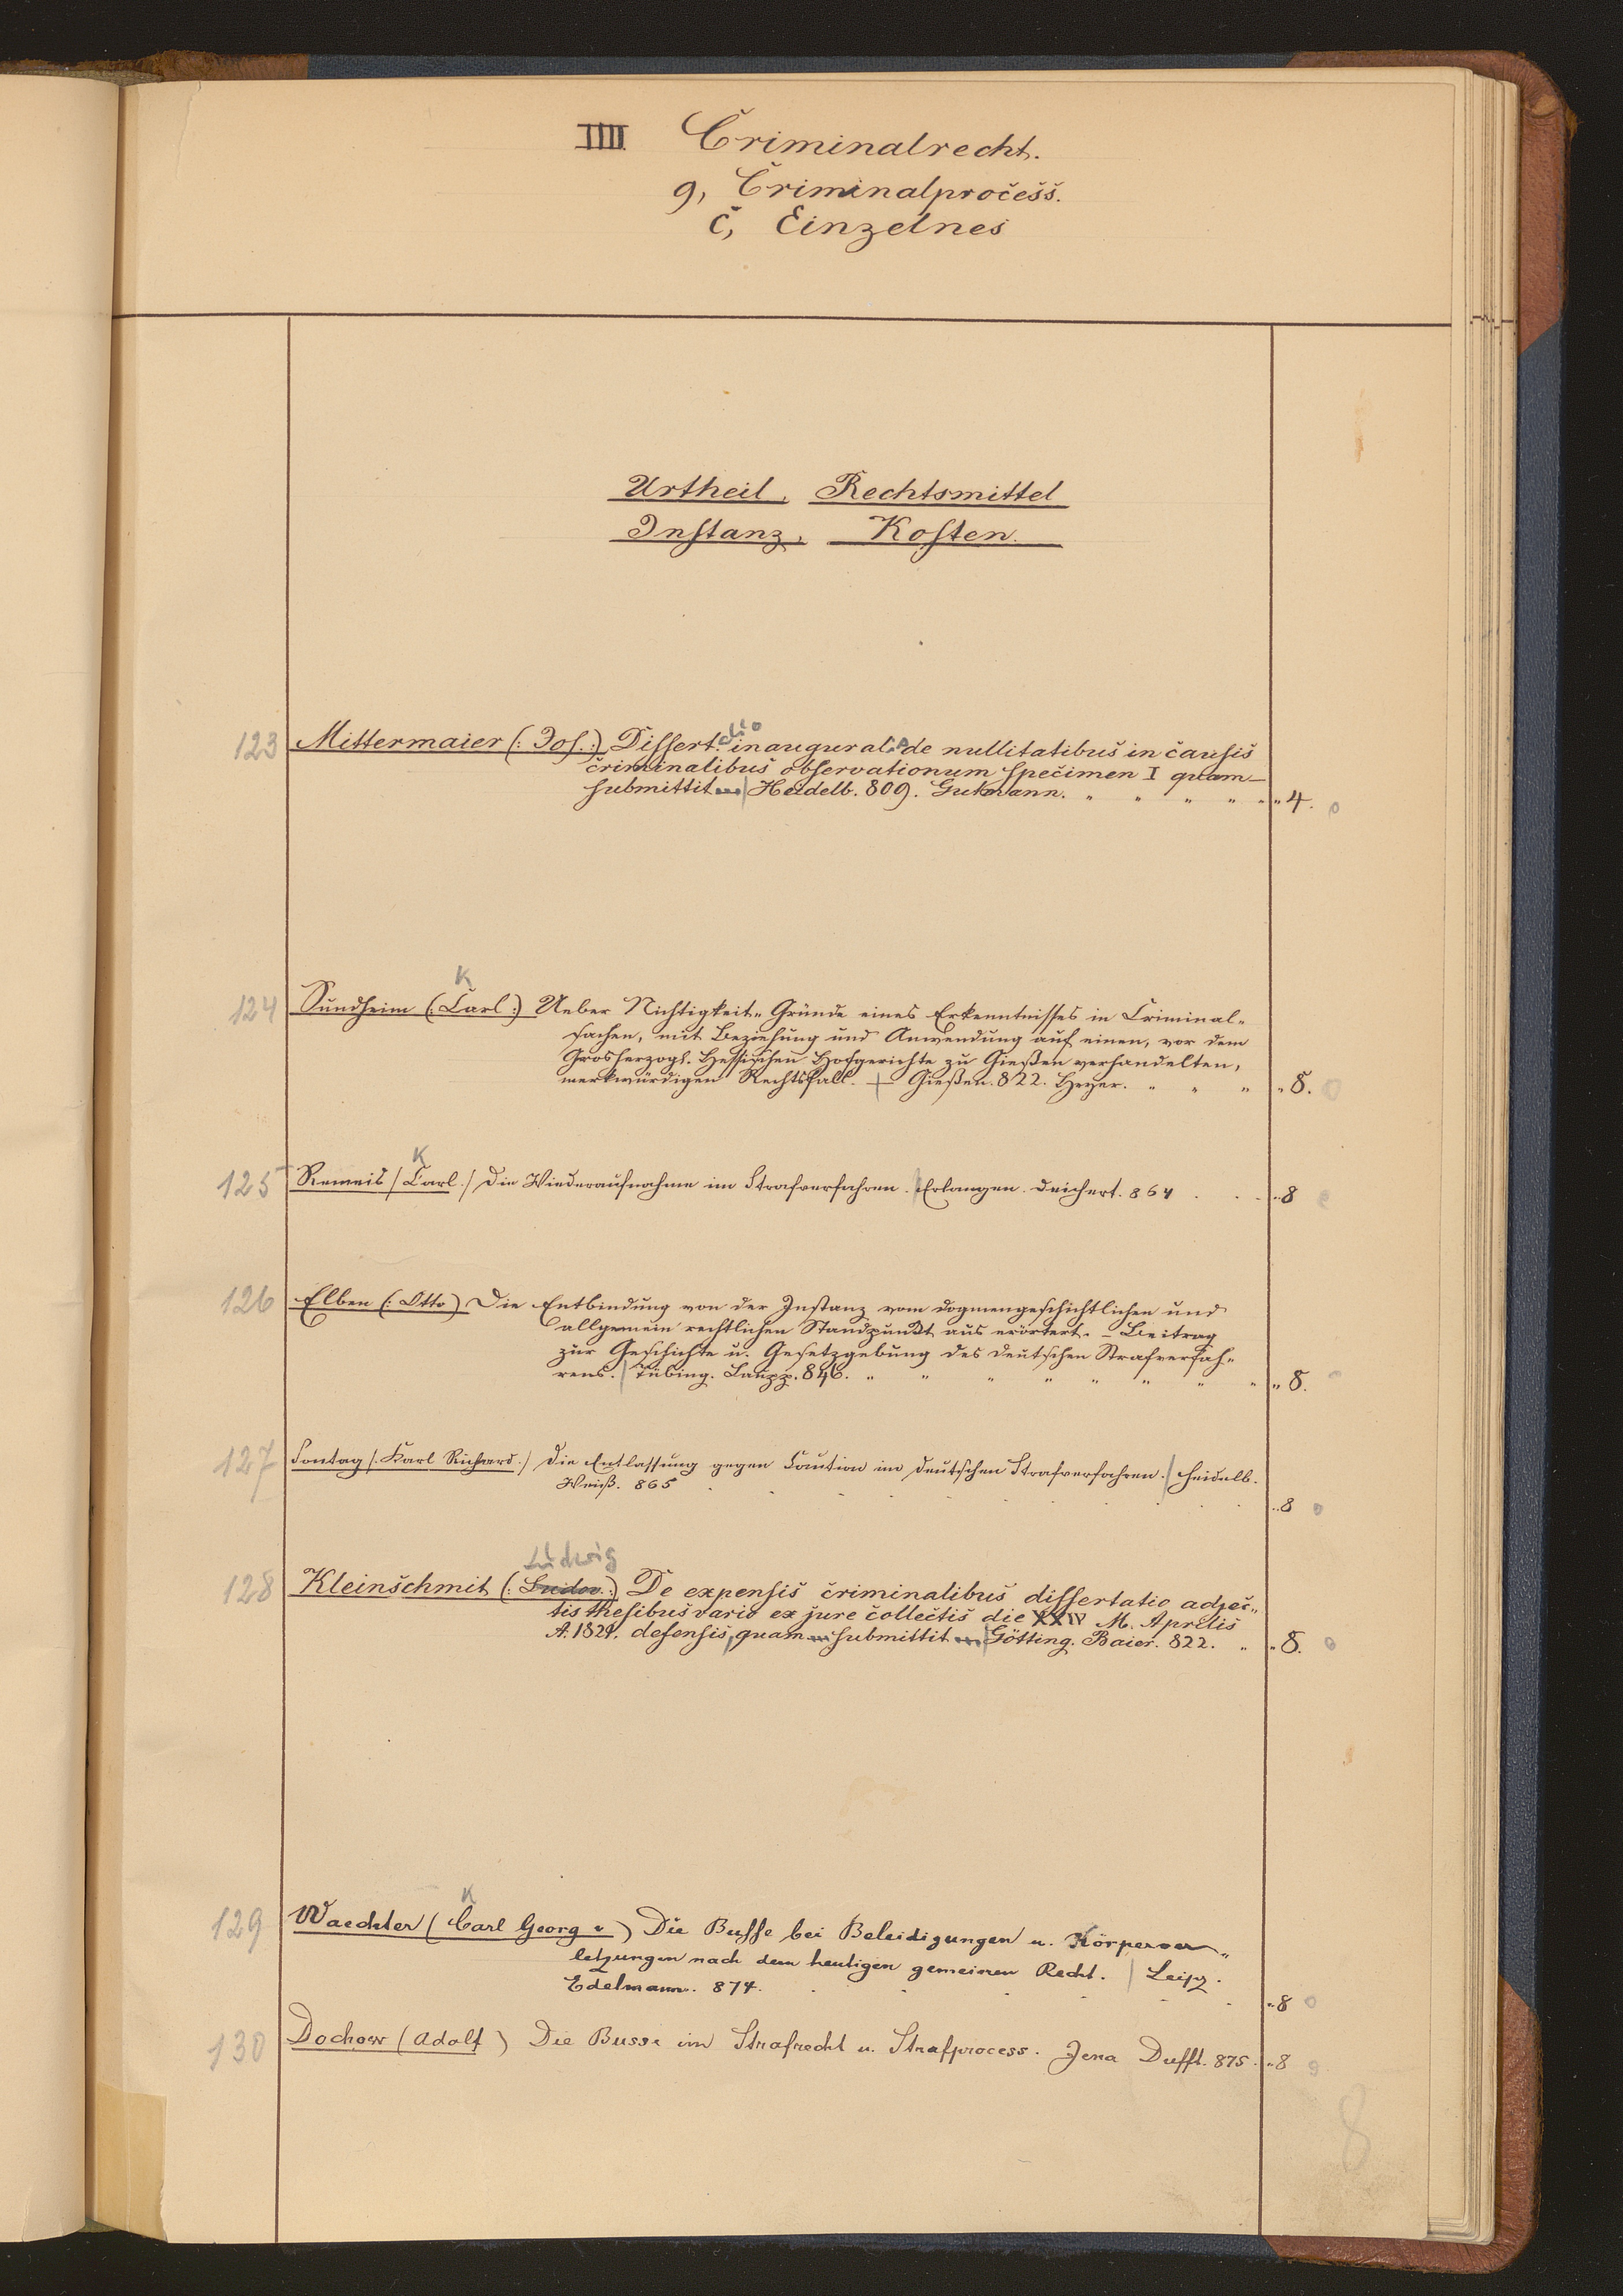 IIII. Criminalrecht.
g, Criminalprocess.
c, Einzelnes
Urtheil, Rechtsmittel
Instanz, Kosten.
123 Mittermaier (: Jos. :) Dissert. inaugural. de nullitatibus in causis
criminalibus observationum specimen I quam
submittit Heidelb. 809. Gutmann. " " " " " " 4.
K
124 Sundheim (: Carl :) Ueber Nichtigkeit-Gründe eines Erkenntnisses in Criminal-
sachen, mit Beziehung und Anwendung auf einen, vor dem
Grosherzogl. Hessischen Hofgerichte zu Gießen verhandelten,
merkwürdigen Rechtsfall. – Gießen. 822. Heyer. " " " " 8.
K
125 Remeis /: Carl :/ Die Wiederaufnahme im Strafverfahren. Erlangen. Deichert. 864 . . . " 8
126 Elben (: Otto) Die Entbindung von der Instanz vom dogmengeschichtlichen und
allgemein rechtlichen Standpunkt aus erörtert. – Beitrag
zur Geschichte u. Gesetzgebung des deutschen Strafverfah-
rens. Tübing. Laupp. 846. " " " " " " " " " 8.
127 Sontag /: Karl Richard :/ Die Entlassung gegen Caution im deutschen Strafverfahren. Heidelb.
Weiß. 865 . . . . . . . . . " 8
Ludwig
128 Kleinschmit (: Ludov. :) De expensis criminalibus dissertatio adjec-
tis thesibus vario ex jure collectis die XXIV M. Aprilis
A. 1821. defensis, quam submittit Götting. Baier. 822. " " 8.
K
129 Waechter (Carl Georg v) Die Busse bei Beleidigungen u. Körperver-
letzungen nach dem heutigen gemeinen Recht. Leipz.
Edelmann. 874. . . . . . . " 8
130 Dochow (Adolf) Die Busse im Strafrecht u. Strafprocess. Jena Dufft. 875. " 8
8